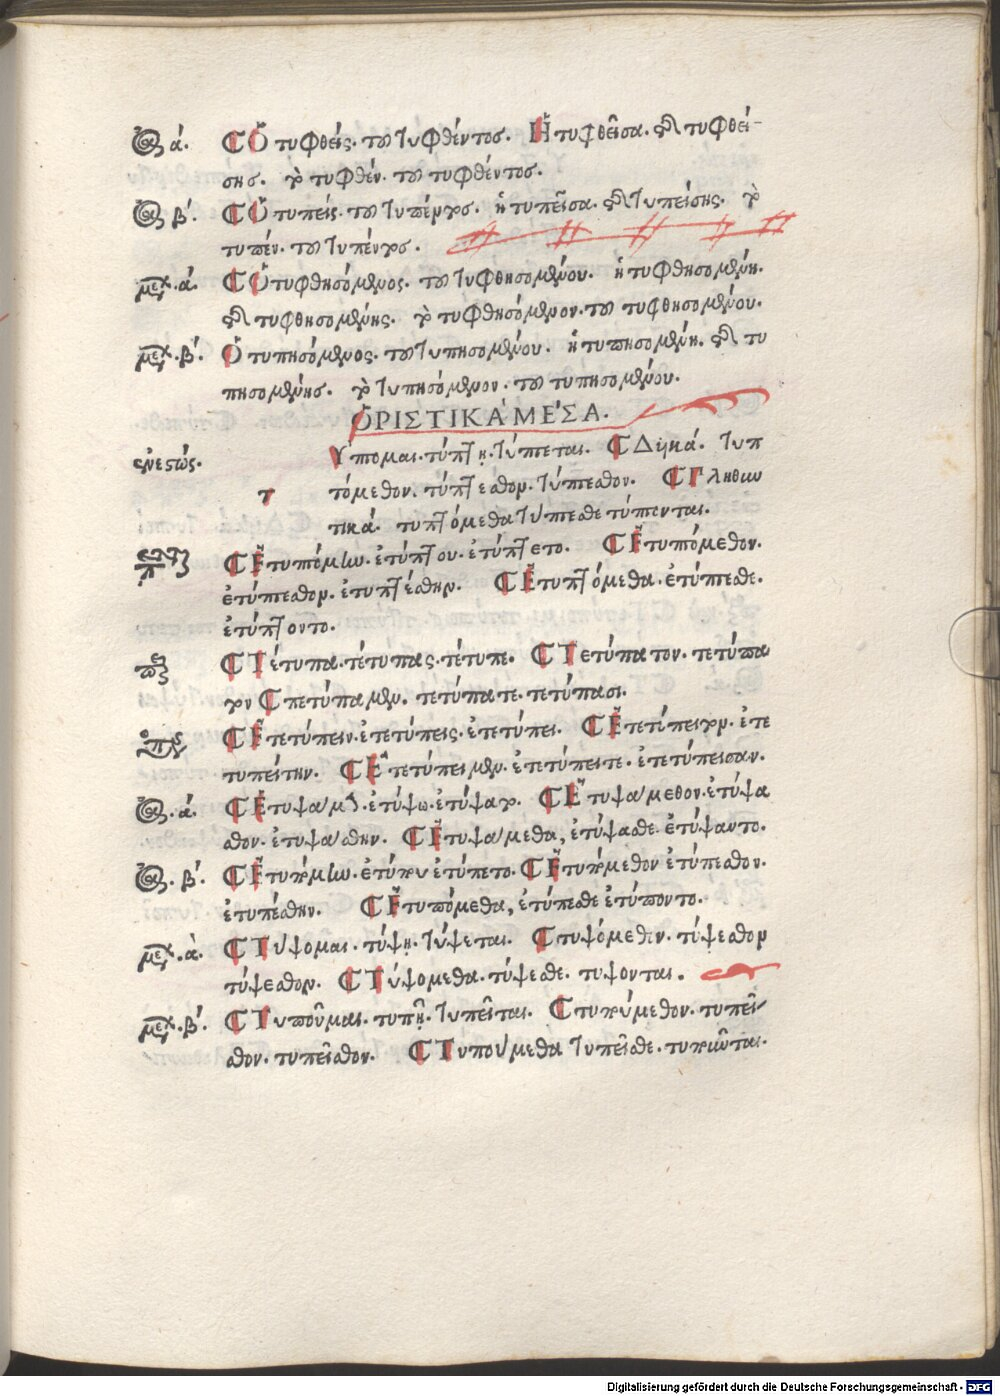 ἀό. α΄. Ὁ τυφθείς. τοῦ τυφθέντος. Ἡ τυφθεῖσα. τῆς τυφθεί-
σης. τὸ τυφθέν. τοῦ τυφθέντος.
ἀό. β΄. Ὁ τυπείς. τοῦ τυπέντος. ἡ τυπεῖσα. τῆς τυπείσης. τὸ
τυπέν. τοῦ τυπέντος.
μελ. α΄. Ὁ τυφθησόμενος. τοῦ τυφθησομένου. ἡ τυφθησομένη.
τῆς τυφθησομένης. τὸ τυφθησόμενον. τοῦ τυφθησομένου.
μελ. β΄. Ὁ τυπησόμενος. τοῦ τυπησομένου. ἡ τυπησομένη. τῆς τυ
πησομένης. τὸ τυπησόμενον. τοῦ τυπησομένου.
ὉΡΙΣΤΙΚΑ ΜΕ΄ΣΑ.
ἐνεστώς. Ύπτομαι. τύπτῃ. τύπτεται. Δυϊκά. τυπ
τ τόμεθον. τύπτεσθον. τύπτεσθον. Πληθυν
τικά. τυπτόμεθα τύπτεσθε τύπτονται.
Ἐτυπτόμην. ἐτύπτου. ἐτύπτετο. Ἐτυπτόμεθον.
ἐτύπτεσθον. ἐτυπτέσθην. Ἐτυπτόμεθα. ἐτύπτεσθε.
ἐτύπτοντο.
Τέτυπα. τέτυπας. τέτυπε. Τετύπατον. τετύπα
τον τετύπαμεν. τετύπατε. τετύπασι.
Ἐτετύπειν. ἐτετύπεις. ἐτετύπει. Ἐτετύπειτον. ἐτε
τυπείτην. Ἐτετύπειμεν. ἐτετύπειτε. ἐτετύπεισαν.
ἀό. α΄. Ἐτυψάμην. ἐτύψω. ἐτύψατο. Ἐτυψάμεθον. ἐτύψα
σθον. ἐτυψάσθην. Ἐτυψάμεθα, ἐτύψασθε. ἐτύψαντο.
ἀό. β΄. Ἐτυπόμην. ἐτύπου ἐτύπετο. Ἐτυπόμεθον ἐτύπεσθον.
ἐτυπέσθην. Ἐτυπόμεθα, ἐτύπεσθε ἐτύποντο.
μελ. α΄. Τύψομαι. τύψῃ. τύψεται. τυψόμεθον. τύψεσθον
τύψεσθον. Τυψόμεθα. τύψεσθε. τύψονται.
μελ. β΄. Τυποῦμαι. τυπῇ. τυπεῖται. τυπούμεθον. τυπεῖ
σθον. τυπεῖσθον. Τυπούμεθα τυπεῖσθε. τυποῦνται.
Digitalisierung gefördert durch die Deutsche Forschungsgemeinschaft - DFG